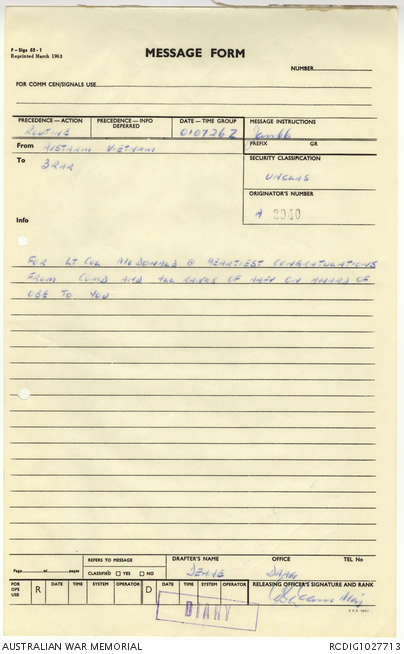 F – Sigs 52 - 1
Reprinted March 1963
MESSAGE FORM
NUMBER
FOR COMM CEN/SIGNALS USE
PRECEDENCE—ACTION PRECEDENCE—INFO DEFERRED DATE—TIME GROUP MESSAGE INSTRUCTIONS
ROUTINE 010726Z Jan 66
PREFIX GR
From AUSTARM VIETNAM
To 3RAR
SECURITY CLASSIFICATION
UNCLAS
ORIGINATOR'S NUMBER
A 2040
Info
FOR LT COL McDONALD @ HEARTIEST CONGRATULATIONS
FROM COMD AND ALL RANKS OF AAFV ON AWARD OF
OBE TO YOU
Page of pages
REFERS TO MESSAGE
CLASSIFIED YES NO
DRAFTER'S NAME OFFICE TEL No
FOR OPS USE R DATE TIME SYSTEM OPERATOR D DATE TIME SYSTEM OPERATOR
RELEASING OFFICER'S SIGNATURE AND RANK
DIARY
AUSTRALIAN WAR MEMORIAL RCDIG1027713